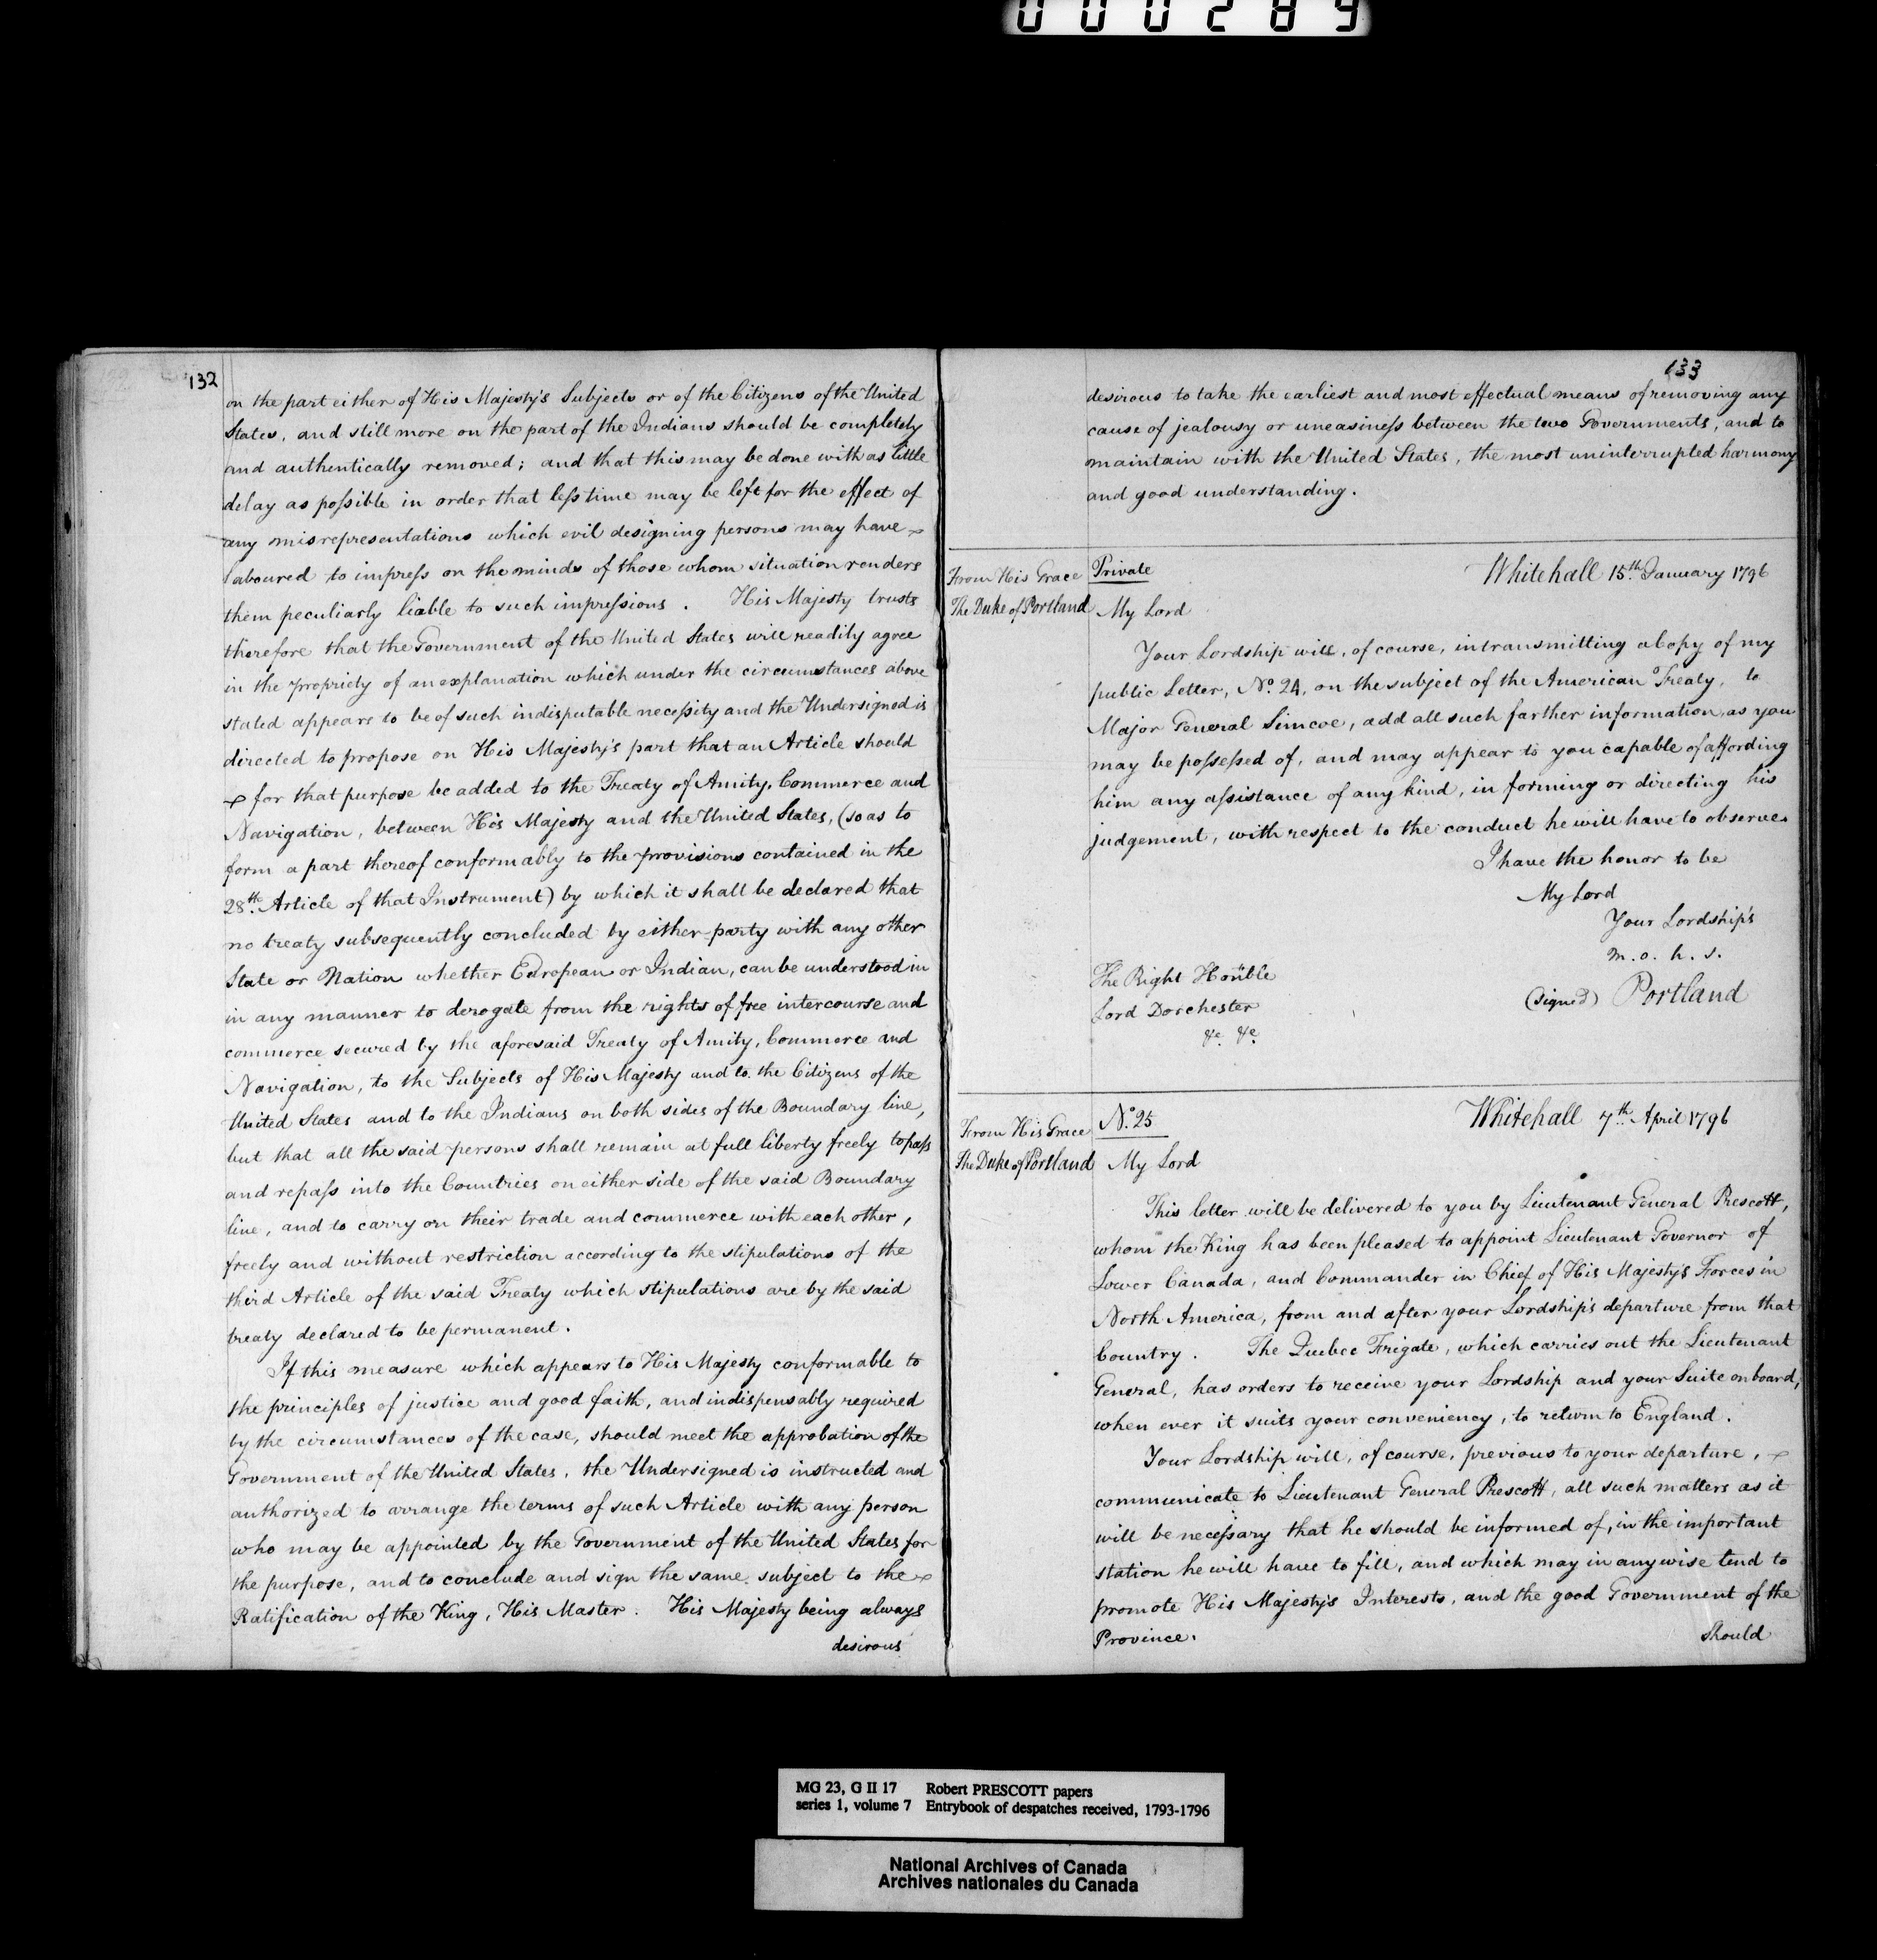 000289
132
on the part either of His Majesty's Subjects or of the Citizens of the United
States, and still more on the part of the Indians should be completely
and authentically removed; and that this may be done with as little
delay as possible in order that less time may be left for the effect of
any misrepresentations which evil designing persons may have
laboured to impress on the minds of those whom situation renders
them peculiarly liable to such impressions. His Majesty trusts
therefore that the Government of the United States will readily agree
in the propriety of an explanation which under the circumstances above
stated appears to be of such indisputable necessity and the Undersigned is
directed to propose on His Majesty's part that an Article should
for that purpose be added to the Treaty of Amity, Commerce and
Navigation, between His Majesty and the United States, (so as to
form a part thereof conformably to the provisions contained in the
28th. Article of that Instrument) by which it shall be declared that
no treaty subsequently concluded by either party with any other
State or Nation whether European or Indian, can be understood in
in any manner to derogate from the rights of free intercourse and
commerce secured by the aforesaid Treaty of Amity, Commerce and
Navigation, to the Subjects of His Majesty and to the Citizens of the
United States and to the Indians on both sides of the Boundary line,
but that all the said persons shall remain at full liberty freely to pass
and repass into the Countries on either side of the said Boundary
line, and to carry on their trade and commerce with each other,
freely and without restriction according to the stipulations of the
third Article of the said Treaty which stipulations are by the said
treaty declared to be permanent.
If this measure which appears to His Majesty conformable to
the principles of justice and good faith, and indispensably required
by the circumstances of the case, should meet the approbation of the
Government of the United States, the Undersigned is instructed and
authorized to arrange the terms of such Article with any person
who may be appointed by the Government of the United States for
the purpose, and to conclude and sign the same subject to the
Ratification of the King, His Master. His Majesty being always
desirous
133
desirous to take the earliest and most effectual means of removing any
cause of jealousy or uneasiness between the two Governments, and to
maintain with the United States, the most uninterrupted harmony
and good understanding.
From His Grace
The Duke of Portland
Private
Whitehall 15th. January 1796
My Lord
Your Lordship will, of course, in transmitting a Copy of my
public Letter, No. 24, on the subject of the American Treaty, to
Major General Simcoe, add all such farther information, as you
may be possessed of, and may appear to you capable of affording
him any assistance of any kind, in forming or directing his
judgement, with respect to the conduct he will have to observe.
I have the honor to be
My Lord
Your Lordship's
m. o. h. s.
(signed) Portland
The Right Honble
Lord Dorchester
&c. &c.
From His Grace
The Duke of Portland
No. 25
Whitehall 7th. April 1796
My Lord
This letter will be delivered to you by Lieutenant General Prescott,
whom the King has been pleased to appoint Lieutenant Governor of
Lower Canada, and Commander in Chief of His Majesty's Forces in
North America, from and after your Lordship's departure from that
Country. The Quebec Frigate, which carries out the Lieutenant
General, has orders to receive your Lordship and your Suite on board,
when ever it suits your conveniency, to return to England.
Your Lordship will, of course, previous to your departure,
communicate to Lieutenant General Prescott, all such matters as it
will be necessary that he should be informed of, in the important
station he will have to fill, and which may in any wise tend to
promote His Majesty's Interests, and the good Government of the
Province.
should
MG 23, G II 17 Robert PRESCOTT papers
series 1, volume 7 Entrybook of despatches received, 1793-1796
National Archives of Canada
Archives nationales du Canada